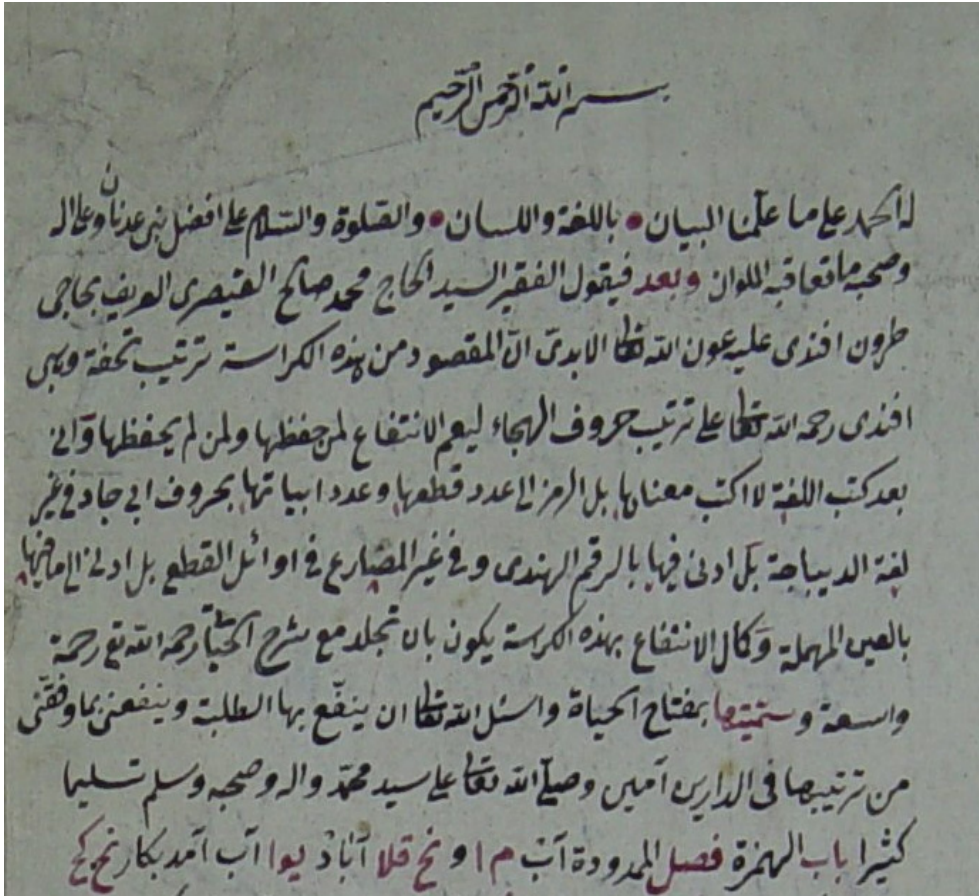 بسم الله الرحمن الرحيم
له الحمد على ما علمنا البيان • باللغة واللسان • والصلوة والسلام على افضل بنى عدنان وعلى اله
وصحبه ما تعاقبه الملوان وبعد فيقول الفقير السيد الحاج محمد صالح القيصرى العريف بحاجى
طرون افندى عليه عون الله تعالى الابدى ان المقصود من هذه الكراسة ترتيب تحفة وهبى
افندى رحمه الله تعالى على ترتيب حروف الهجاء ليعم الانتفاع لمن حفظها ولمن لم يحفظها وانى
بعد كتب اللغة لا اكتب معناها بل الرمز الى عدد قطعها وعدد ابياتها بحروف ابى جاد فى غير
لغة الديباجة بل ادنى فيها بالرقم الهندى وفى غير المضارع فى اوائل القطع بل ادنى الى ما فيها
بالعين المهملة وكمال الانتفاع بهذه الكراسة يكون بان تجلد مع شرح الحياتى رحمه الله تع رحمة
واسعة وسميتها بمفتاح الحياة واسئل الله تعالى ان ينفع بها الطلبة وينفعنى بما وفقنى
من ترتيبها فى الدارين آمين وصلى الله تعالى على سيد محمد واله وصحبه وسلم تسليما
كثيرا باب الهمزة فصل الممدودة آب م ا و نح قلا آباد يوا آب آمد بكار نح كح